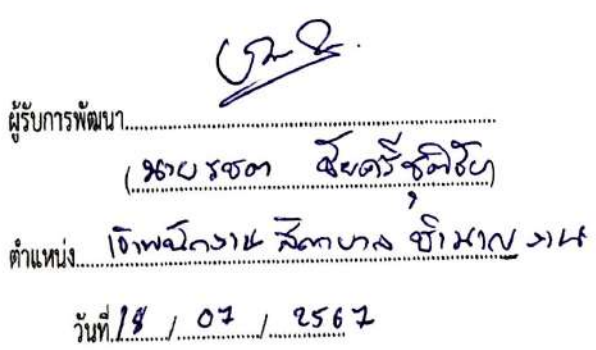 ผู้รับการพัฒนา
(นายรชตา ชัยศรีชุติชัย)
ตำแหน่ง เจ้าพนักงาน ชำนาญงาน
วันที่ 18 / 07 / 2567